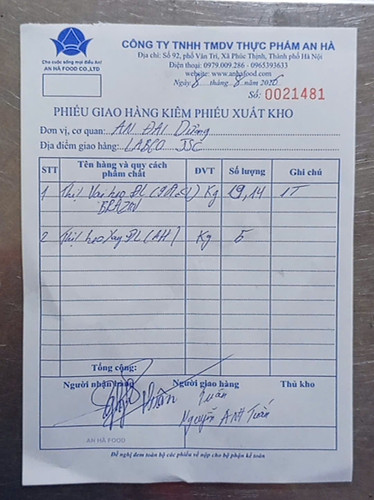 AH
Cho cuộc sống mọi điều An!
AN HÀ FOOD CO.,LTD
CÔNG TY TNHH TMDV THỰC PHẨM AN HÀ
Địa chỉ: Số 92, phố Văn Trì, Xã Phúc Thịnh, Thành phố Hà Nội
Điện thoại: 0979.009.286 - 0965393633
website: www.anhafood.com
Ngày 8 tháng 8 năm 2026
Số: 0021481
PHIẾU GIAO HÀNG KIÊM PHIẾU XUẤT KHO
Đơn vị, cơ quan: AN ĐẠI Dương
Địa điểm giao hàng: LABCO JSC
STT Tên hàng và quy cách phẩm chất ĐVT Số lượng Ghi chú
1 Thịt heo ĐL Kg 19,14 1T
2 Thịt heo xay ĐL (AH) Kg 5
Tổng cộng:
Người nhận hàng Người giao hàng Thủ kho
Tuấn
Nguyễn Anh Tuấn
AN HÀ FOOD
Đề nghị đem toàn bộ các phiếu về nộp cho bộ phận kế toán